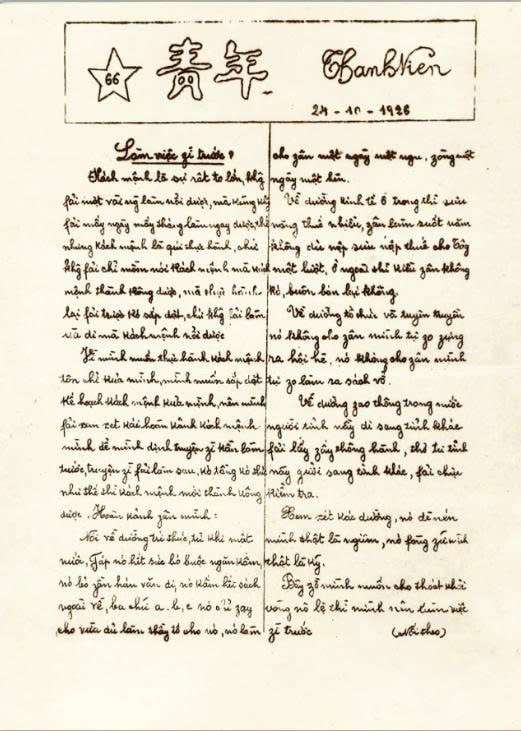 66
青年
Thanh Niên
24 - 10 - 1926
Làm việc zì trước?
Kách mệnh là sự rất to lớn, khg
fải một vài ng làm nổi được, mà kũng khg
fải mấy ngày mấy tháng làm ngay được, thế
nhưng kách mệnh là qúi thực hành, chứ
khg fải chỉ mồm nói kách mệnh mà kách
mệnh thành kông được, mà thực hành
lại fải trước kó sắp đặt, chứ khg fải làm
và đi mà kách mệnh nổi được
mình muốn thực hành kách mệnh
tôn chỉ kủa mình, mình muốn sắp đặt
kế hoạch kách mệnh kủa mình, nên mình
fải xem xét kái hoàn kảnh kách mệnh
mình để mình định truyện zì kần làm
trước, truyện zì fải làm sau, kó tầng kó thứ
như thế thì kách mệnh mới thành kông
được. Hoàn kảnh zân mình:
Nói về đường tri thức, từ khi mất
nước, Fáp nó hết sức bó buộc ngăn kấm,
nó bỏ zân hán văn đi, nó kấm hết sách
ngoài về, ba chữ a, b, c nó zạy
cho vừa đủ làm thầy tớ cho nó, nó làm
cho zân một ngày một ngu, zòng một
ngày một hèn.
Về đường kinh tế ở trong thì sưu
nặng thuế nhiều, zân làm suốt năm
không đủ nộp sưu nộp thuế cho Tây
một lượt, ở ngoài thì kiều zân không
kó, buôn bán lại không.
Về đường tổ chức và tuyên truyền
nó không cho zân mình tự zo zựng
ra hội hè, nó không cho zân mình
tự zo làm ra sách vở.
Về đường zao thông trong nước
người tỉnh này đi sang tỉnh khác
fải lấy zấy thông hành, thơ từ tỉnh
này zửi sang tỉnh khác, fải chịu
kiểm tra.
Xem xét kác đường, nó đè nén
mình thật là ngiêm, nó fòng zữ mình
thật là kỹ.
Bây zờ mình muốn cho thoát khỏi
vòng nô lệ thì mình nên làm việc
zì trước (Nối theo)